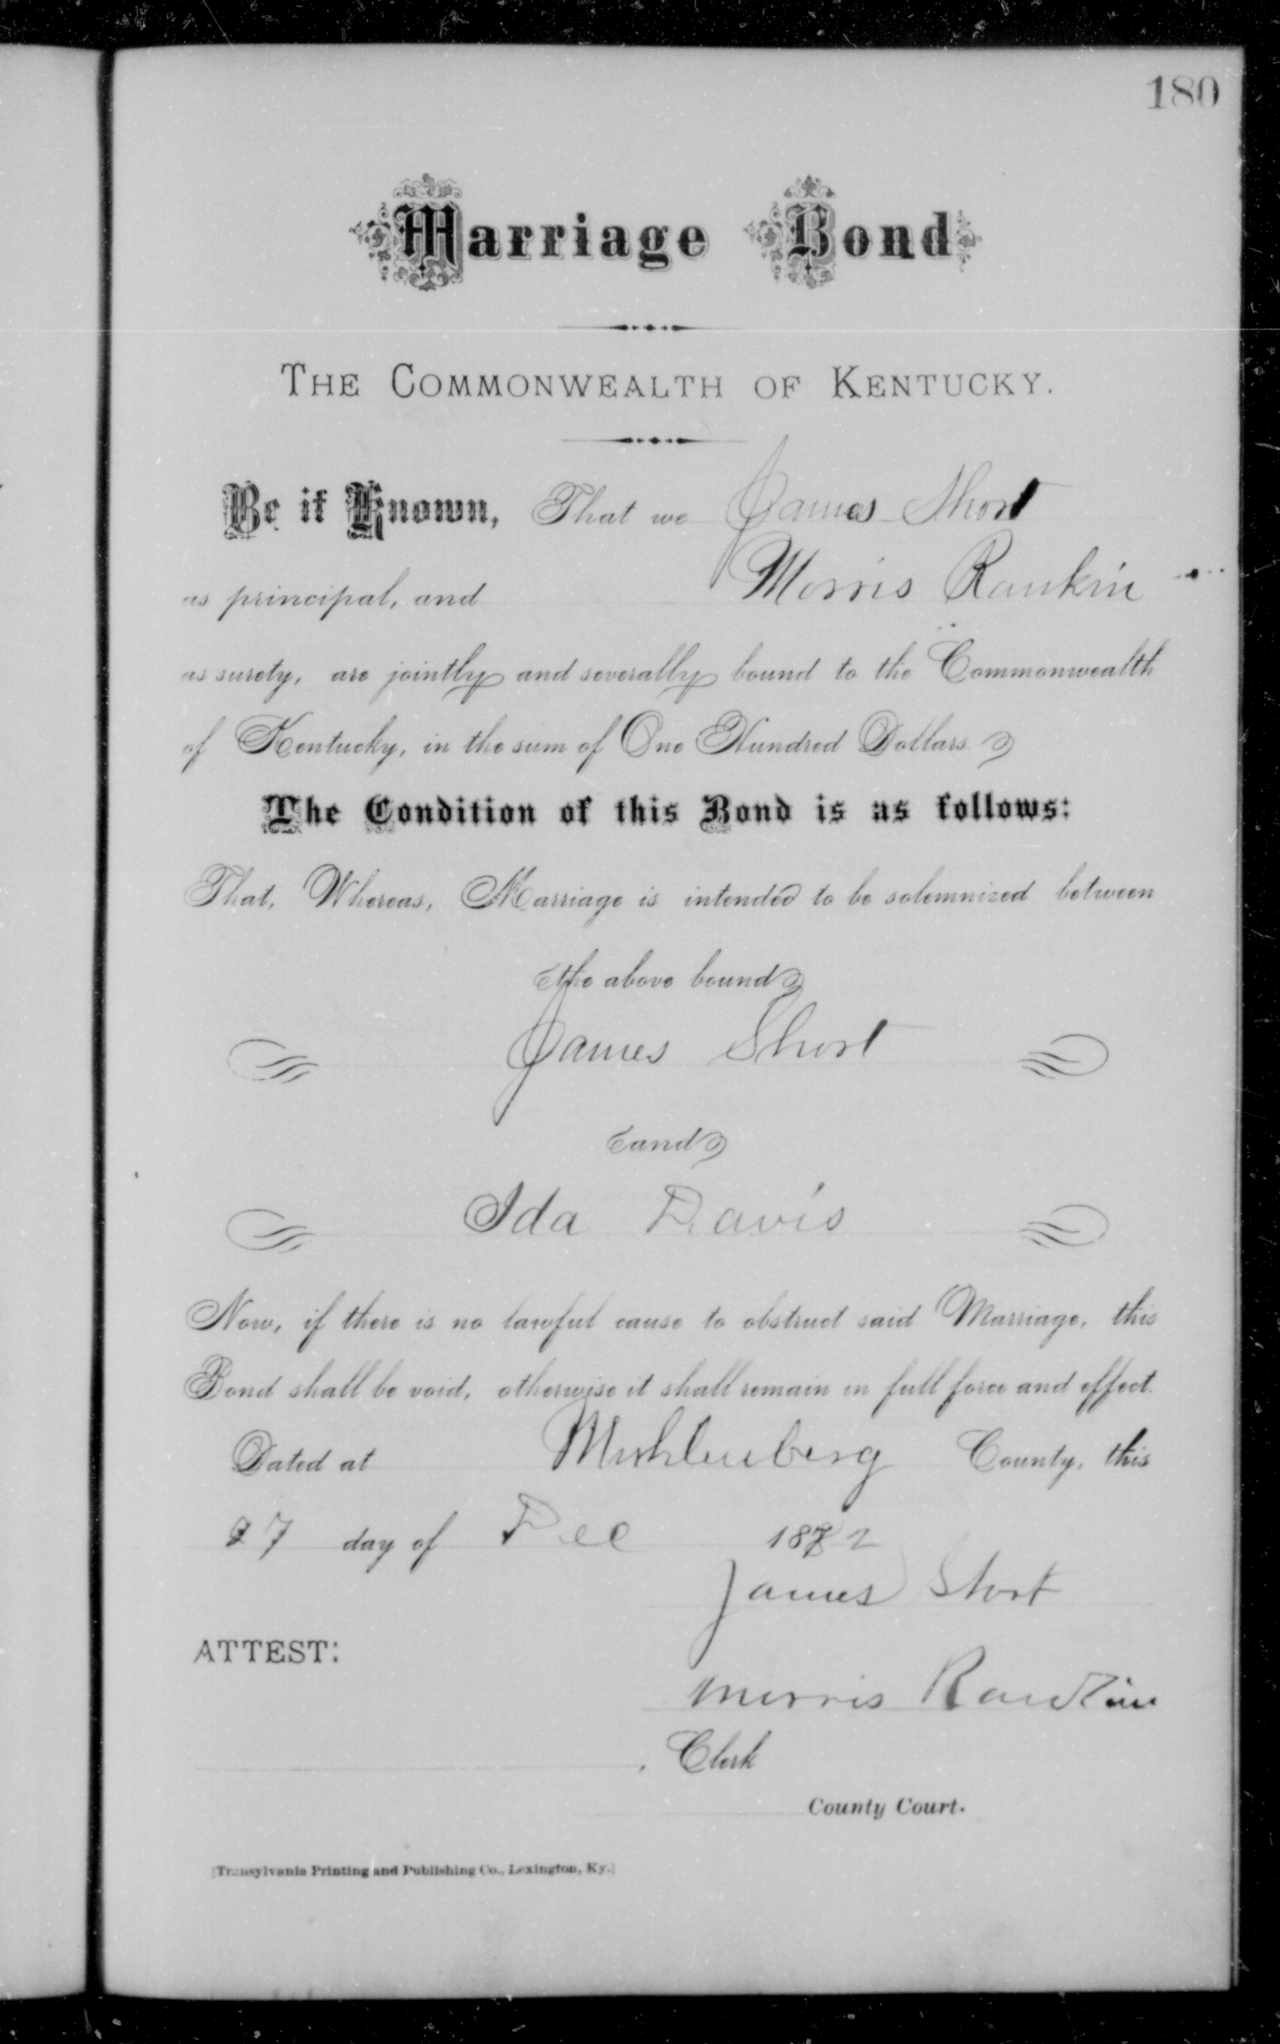 180
Marriage Bond
THE COMMONWEALTH OF KENTUCKY.
Be it Known, That we James Short
as principal, and Morris Rankin
as surety, are jointly and severally bound to the Commonwealth
of Kentucky, in the sum of One Hundred Dollars
The Condition of this Bond is as follows:
That, Whereas, Marriage is intended to be solemnized between
the above bound
James Short
and
Ida Davis
Now, if there is no lawful cause to obstruct said Marriage, this
Bond shall be void, otherwise it shall remain in full force and effect.
Dated at Muhlenberg County, this
27 day of Dec
James Short
ATTEST:
Morris Rankin
, Clerk
County Court.
[Transylvania Printing and Publishing Co., Lexington, Ky.]